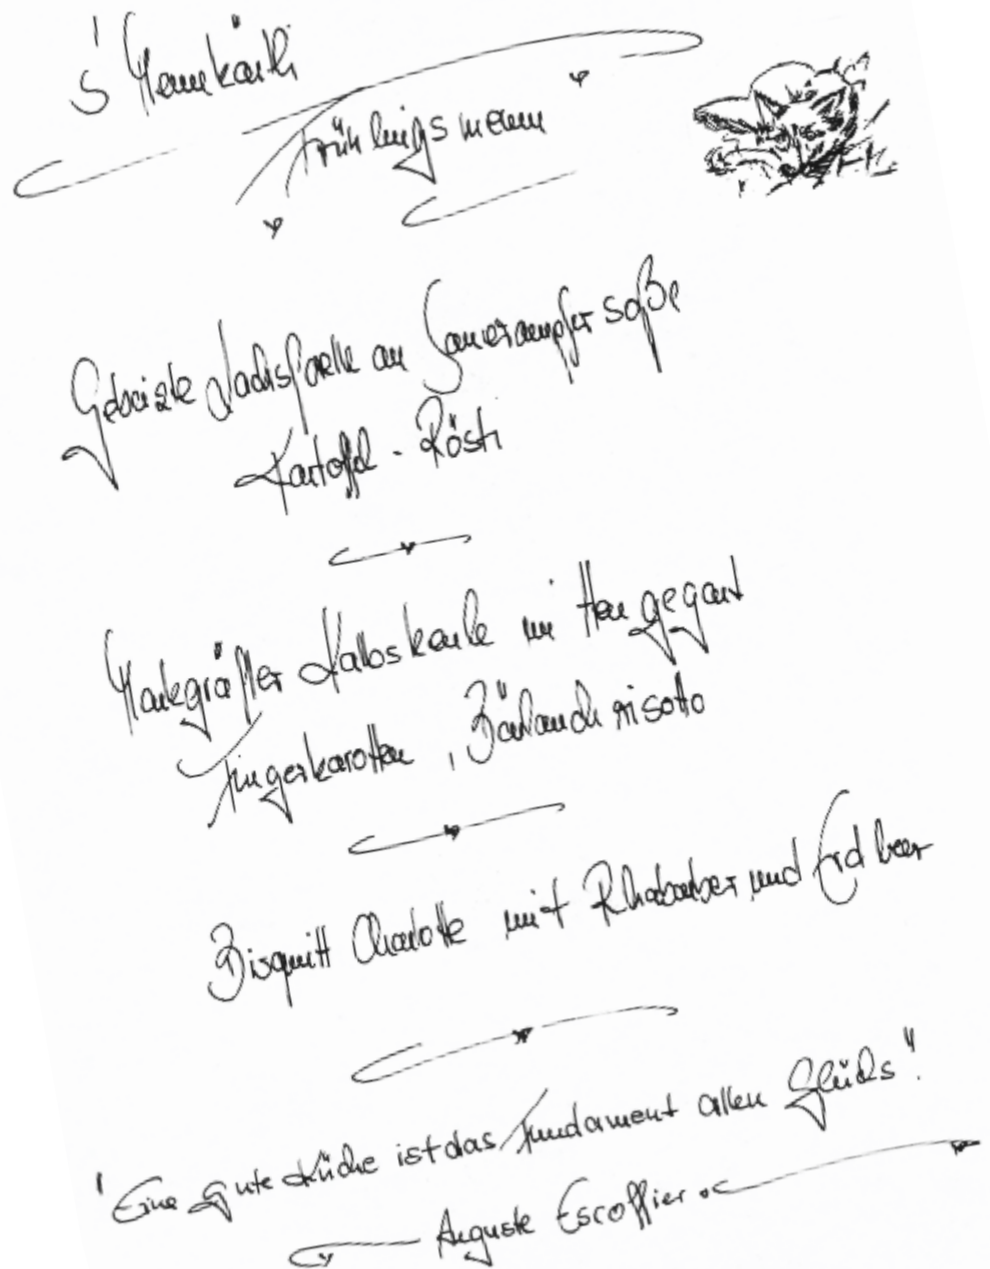 s'Mennkäthi
Frühlingsmenu
Gebeizte Lachsforelle an Sauerampfersoße
Kartoffel - Rösti
Markgräfler Kalbskeule im Heu gegart
Fingerkarotten, Bärlauchrisotto
Bisquitt Charlotte mit Rhabarber und Erdbeer
"Eine gute Küche ist das Fundament allen Glücks".
Auguste Escoffier